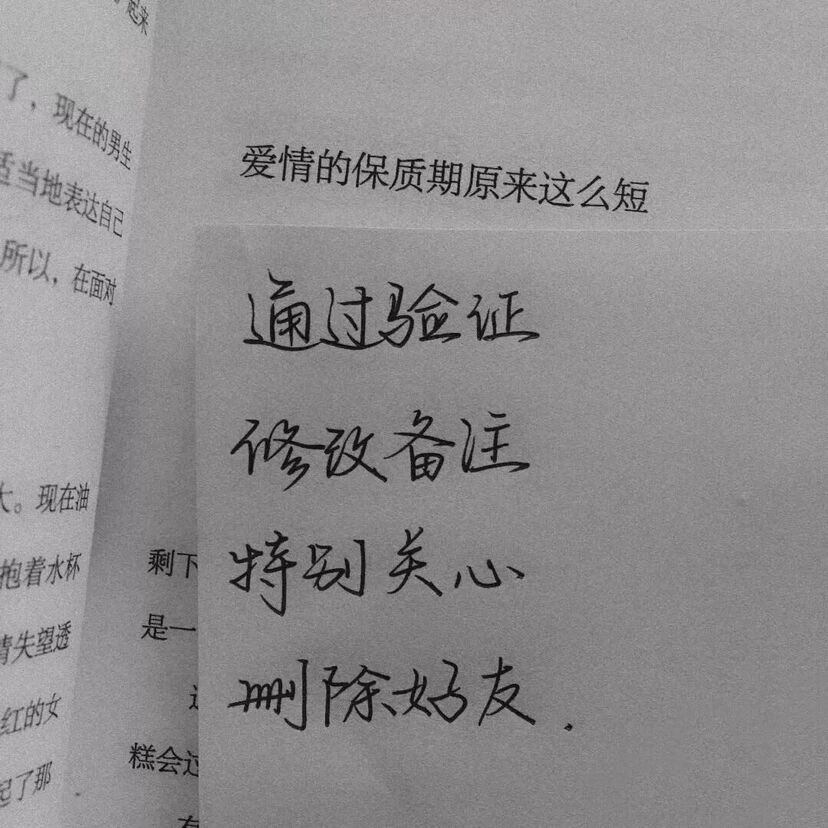 起来
了，现在的男生
适当地表达自己
所以，在面对
大。现在油
抱着水杯
情失望透
红的女
起了那
爱情的保质期原来这么短
通过验证
修改备注
特别关心
删除好友.
剩下
是一
糕会过
有